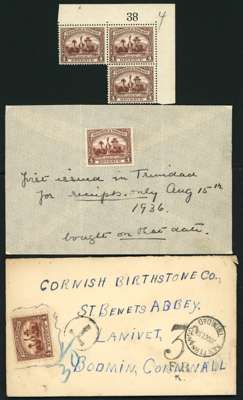 38
4
First issued in Trinidad
for receipts only Aug 15th
1936.
bought on that date.
CORNISH BIRTHSTONE Co.,
ST BENETS ABBEY,
LANIVET,
BODMIN, CORNWALL
3